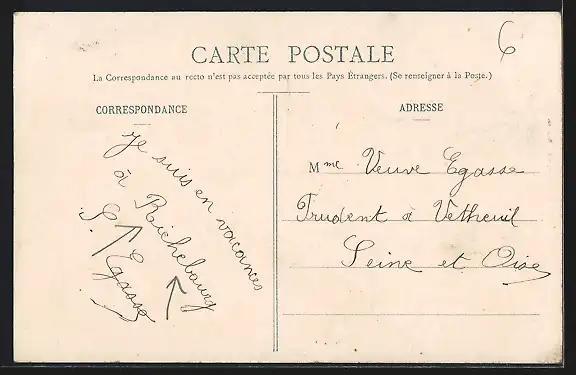 6
CARTE POSTALE
La Correspondance au recto n'est pas acceptée par tous les Pays Étrangers. (Se renseigner à la Poste.)
CORRESPONDANCE
Je suis en vacances
à Richebourg
S. Egasse
ADRESSE
Mme Veuve Egasse
Prudent à Vetheuil
Seine et Oise